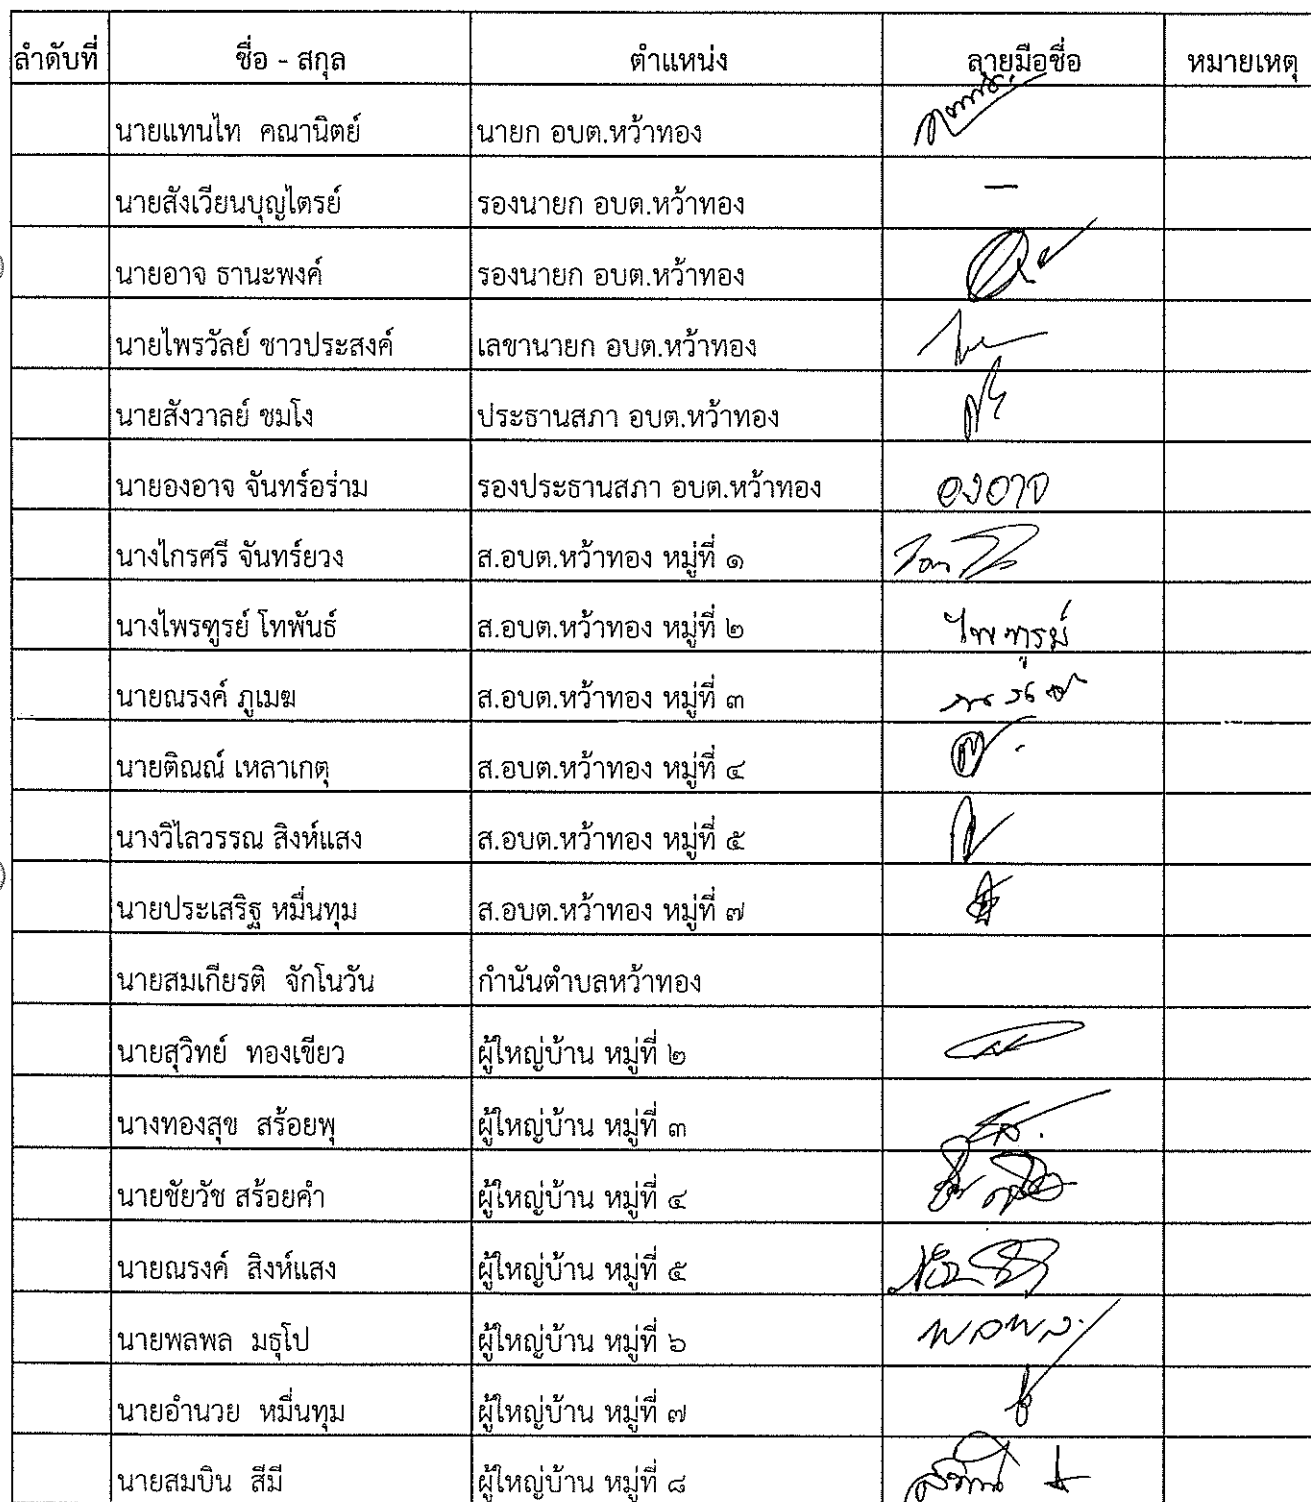 ลำดับที่ ชื่อ - สกุล ตำแหน่ง ลายมือชื่อ หมายเหตุ
นายแทนไท คณานิตย์ นายก อบต.หว้าทอง
นายสังเวียนบุญไตรย์ รองนายก อบต.หว้าทอง —
นายอาจ ธานะพงค์ รองนายก อบต.หว้าทอง
นายไพรวัลย์ ชาวประสงค์ เลขานายก อบต.หว้าทอง
นายสังวาลย์ ชมโง ประธานสภา อบต.หว้าทอง
นายองอาจ จันทร์อร่าม รองประธานสภา อบต.หว้าทอง องอาจ
นางไกรศรี จันทร์ยวง ส.อบต.หว้าทอง หมู่ที่ ๑
นางไพรฑูรย์ โทพันธ์ ส.อบต.หว้าทอง หมู่ที่ ๒ ไพฑูรย์
นายณรงค์ ภูเมฆ ส.อบต.หว้าทอง หมู่ที่ ๓
นายติณณ์ เหลาเกตุ ส.อบต.หว้าทอง หมู่ที่ ๔
นางวิไลวรรณ สิงห์แสง ส.อบต.หว้าทอง หมู่ที่ ๕
นายประเสริฐ หมื่นทุม ส.อบต.หว้าทอง หมู่ที่ ๗
นายสมเกียรติ จักโนวัน กำนันตำบลหว้าทอง
นายสุวิทย์ ทองเขียว ผู้ใหญ่บ้าน หมู่ที่ ๒
นางทองสุข สร้อยพุ ผู้ใหญ่บ้าน หมู่ที่ ๓
นายชัยวัช สร้อยคำ ผู้ใหญ่บ้าน หมู่ที่ ๔
นายณรงค์ สิงห์แสง ผู้ใหญ่บ้าน หมู่ที่ ๕
นายพลพล มธุโป ผู้ใหญ่บ้าน หมู่ที่ ๖
นายอำนวย หมื่นทุม ผู้ใหญ่บ้าน หมู่ที่ ๗
นายสมบิน สีมี ผู้ใหญ่บ้าน หมู่ที่ ๘